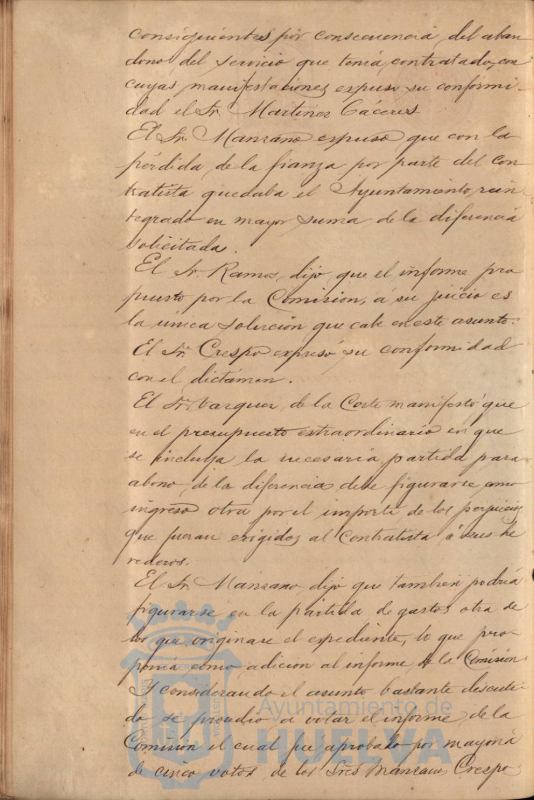 consiguientes por consecuencia del aban
dono del servicio que tenia contratado, con
cuyas manifestaciones expuso su conformi-
dad el Sr. Martinez Cáceres
El Sr. Manzano expuso que con la
pérdida de la fianza por parte del con
tratista quedaba el Ayuntamiento, rein
tegrado en mayor suma de la diferencia
solicitada.
El Sr. Ramos, dijo que el informe pro
puesto por la Comision, á su juicio es
la única solucion que cabe en este asunto.
El Sr. Crespo expresó su conformidad
con el dictámen.
El Sr. Vazquez de la Corte manifestó que
en el presupuesto extraordinario en que
se incluya la necesaria partida para
abono de la diferencia debe figurarse como
ingreso otra por el importe de los perjuicios
que fueran exigidos al Contratista ó sus he
rederos.
El Sr. Manzano dijo que tambien podria
figurarse en la partida de gastos otra de
lo que originase el expediente, lo que pro-
ponia como adicion al informe de la Comision
Y considerando el asunto bastante discuti-
do se procedió a votar el informe de la
Comision el cual fue aprobado por mayoria
de cinco votos de los Sres Manzano Crespo
Ayuntamiento de
HUELVA